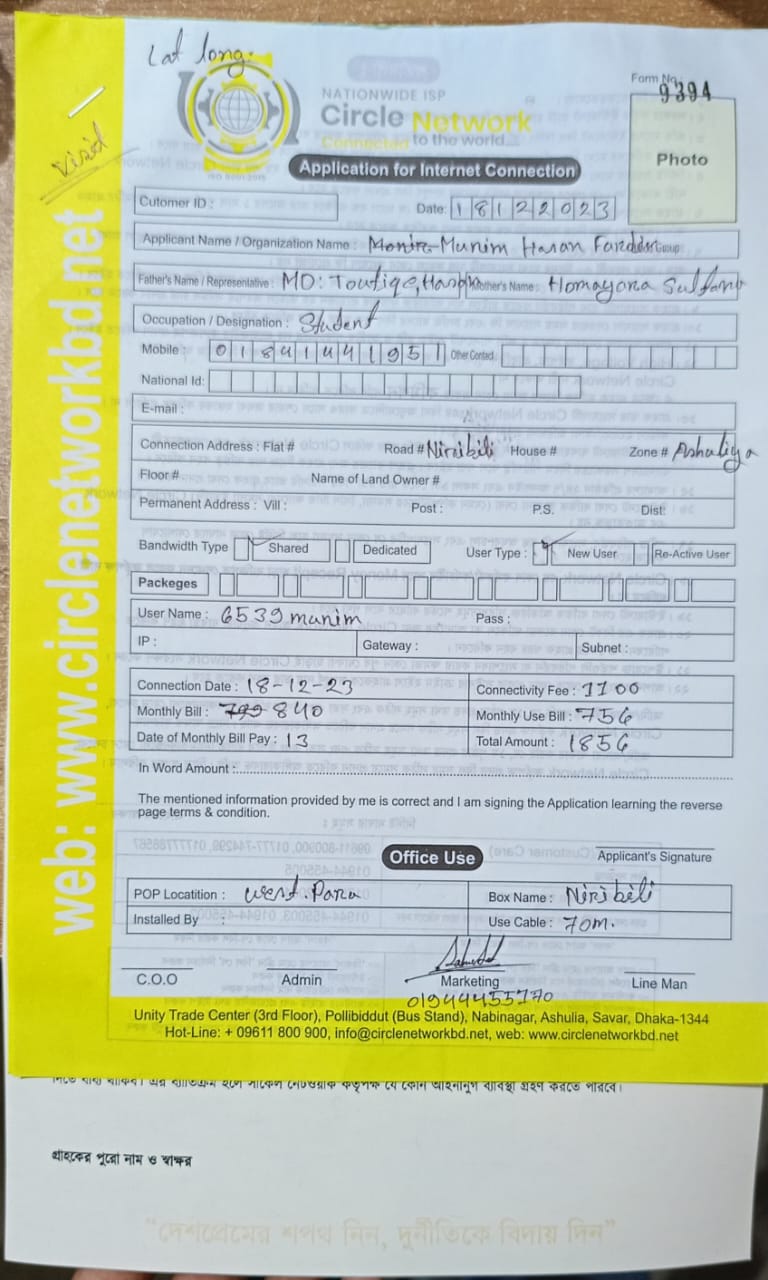 Lat long.
NATIONWIDE ISP
Circle Network
Connected to the world...
ISO 9001:2015
Form No.
9394
Photo
Visit
web: www.circlenetworkbd.net
Application for Internet Connection
Cutomer ID : Date: 18122023
Applicant Name / Organization Name : Munim Hasan
Father's Name / Representative : MD: Toufiqe, Mother's Name : Homayona Sultana
Occupation / Designation : Student
Mobile : 01841441951 Other Contact
National Id:
E-mail :
Connection Address : Flat # Road # Niribili House # Zone # Ashuliya
Floor # Name of Land Owner #
Permanent Address : Vill : Post : P.S. Dist:
Bandwidth Type Shared Dedicated User Type : New User Re-Active User
Packeges
User Name : 6539munim Pass :
IP : Gateway : Subnet :
Connection Date : 18-12-23 Connectivity Fee : 1100
Monthly Bill : 799 840 Monthly Use Bill : 756
Date of Monthly Bill Pay : 13 Total Amount : 1856
In Word Amount :
The mentioned information provided by me is correct and I am signing the Application learning the reverse
page terms & condition.
Office Use Applicant's Signature
POP Locatition : West. Para Box Name : Niribili
Installed By : Use Cable : 70m.
C.O.O Admin Marketing Line Man
01944455170
Unity Trade Center (3rd Floor), Pollibiddut (Bus Stand), Nabinagar, Ashulia, Savar, Dhaka-1344
Hot-Line: + 09611 800 900, info@circlenetworkbd.net, web: www.circlenetworkbd.net
গ্রাহকের পুরো নাম ও স্বাক্ষর
“দেশপ্রেমের শপথ নিন, দুর্নীতিকে বিদায় দিন”